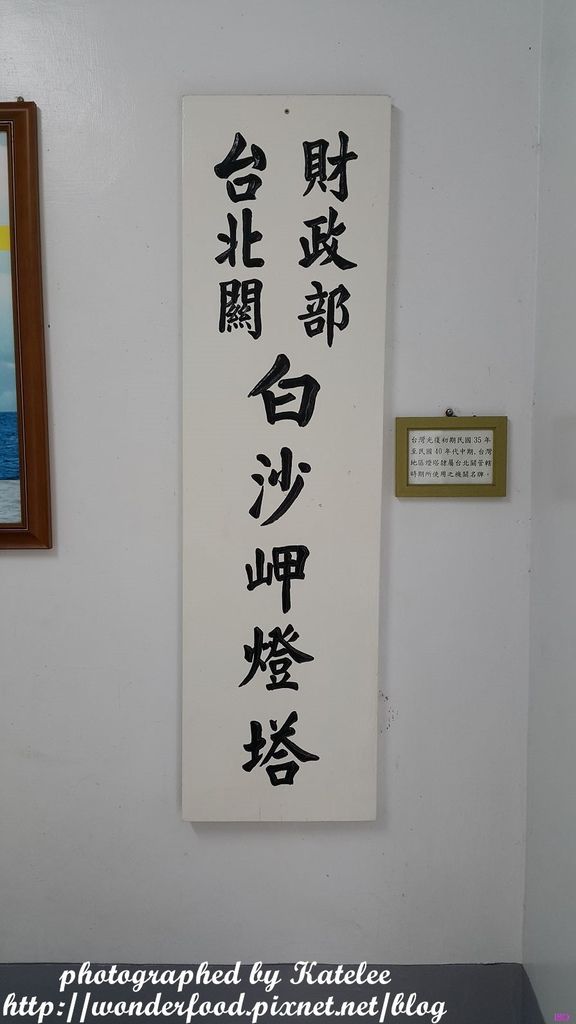 財政部
台北關
白沙岬燈塔
台灣光復初期民國 35 年
至民國 40 年代中期，台灣
地區燈塔隸屬台北關管轄
時期所使用之機關名牌。
photographed by Katelee
http://wonderfood.pixnet.net/blog